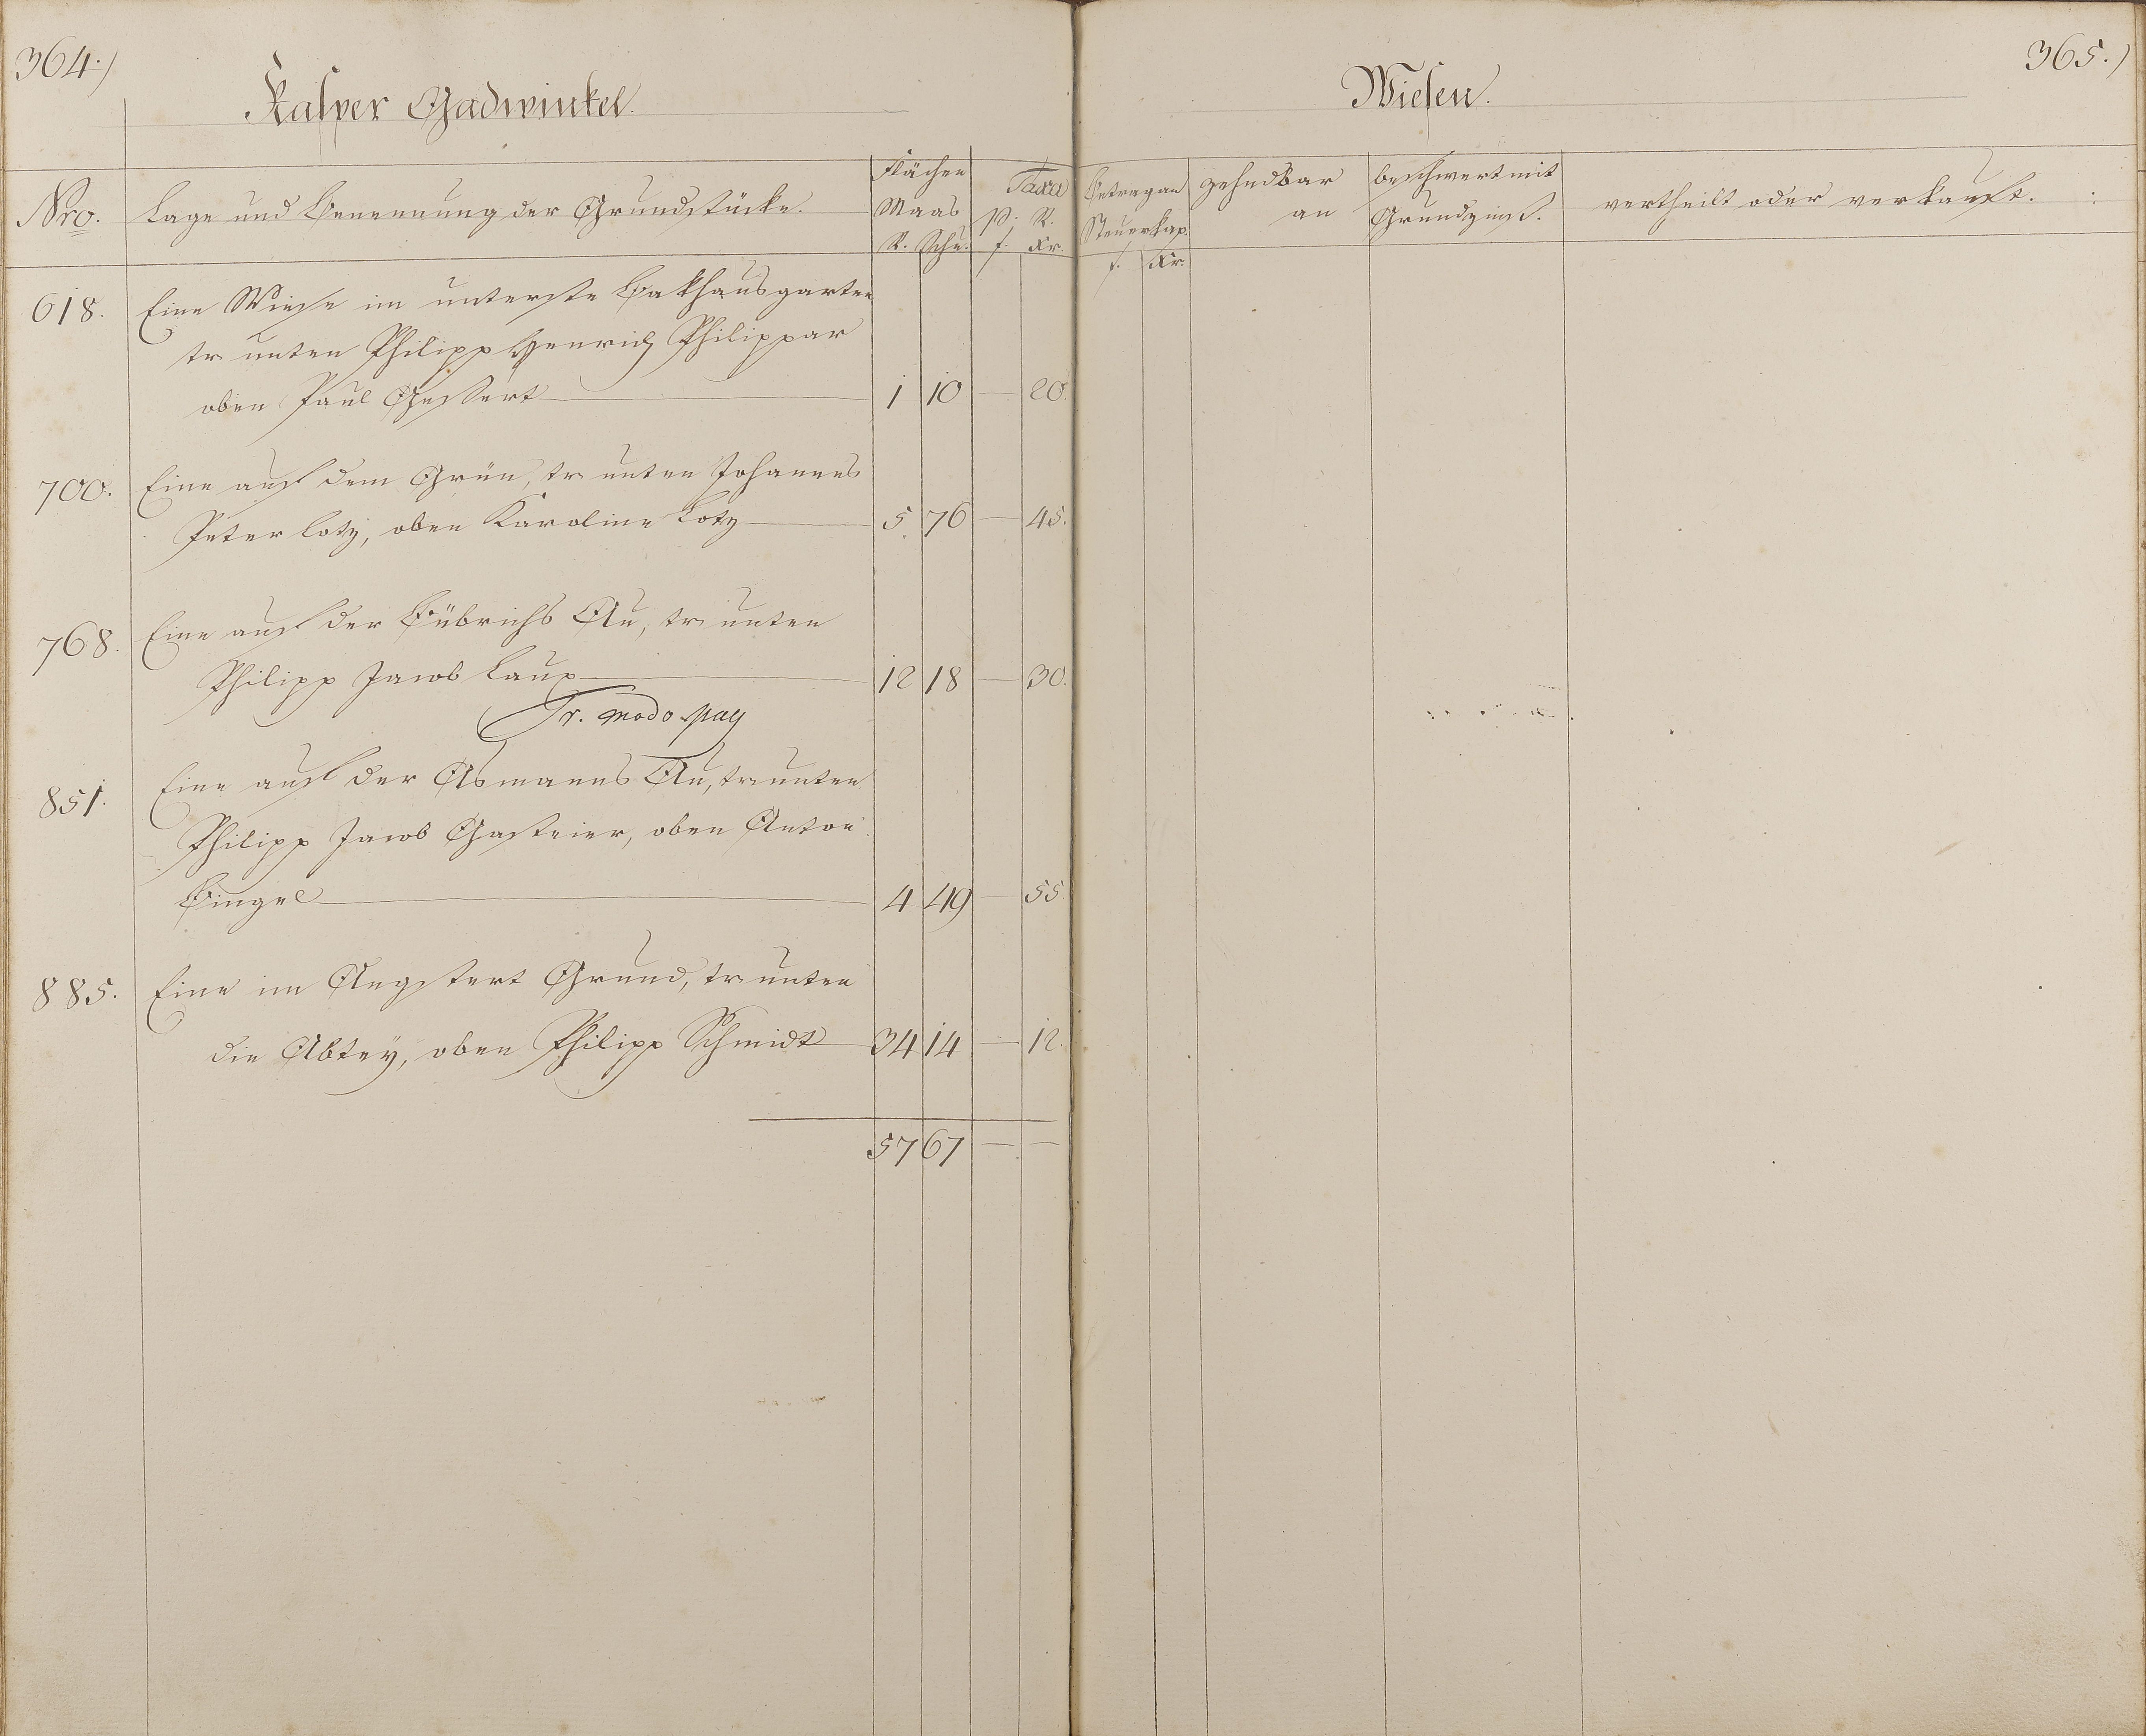 364.)
Kasper Gadwinkel.
Nro. Lage und Benennung der Grundstücke. Flächen Maas R. Schu. Taxa p. R. f. Kr.
618. Eine Wiese im unterste Bakhausgarten
tr unten Philipp Henrich Philippar
oben Paul Gessert 1 10 — 20.
700. Eine auf dem Grün, tr unten Johannes
Peter Lotz, oben Karoline Lotz 5 76 — 45.
768. Eine auf der Bübrichs Au, tr unten
Philipp Jacob Laux 12 18 — 30.
Tr. modo pag
851. Eine auf der Asmanns Au, tr unten
Philipp Jacob Gasteier, oben Anton
Bingel 4 49 — 55
885. Eine im Angstert Grund, tr unten
die Abtey, oben Philipp Schmidt 34 14 — 12.
57 67 — —
365.)
Wiesen.
Betrag an Steuerkap. f. Kr. zehndbar an beschwert mit Grundzinß. vertheilt oder verkauft.